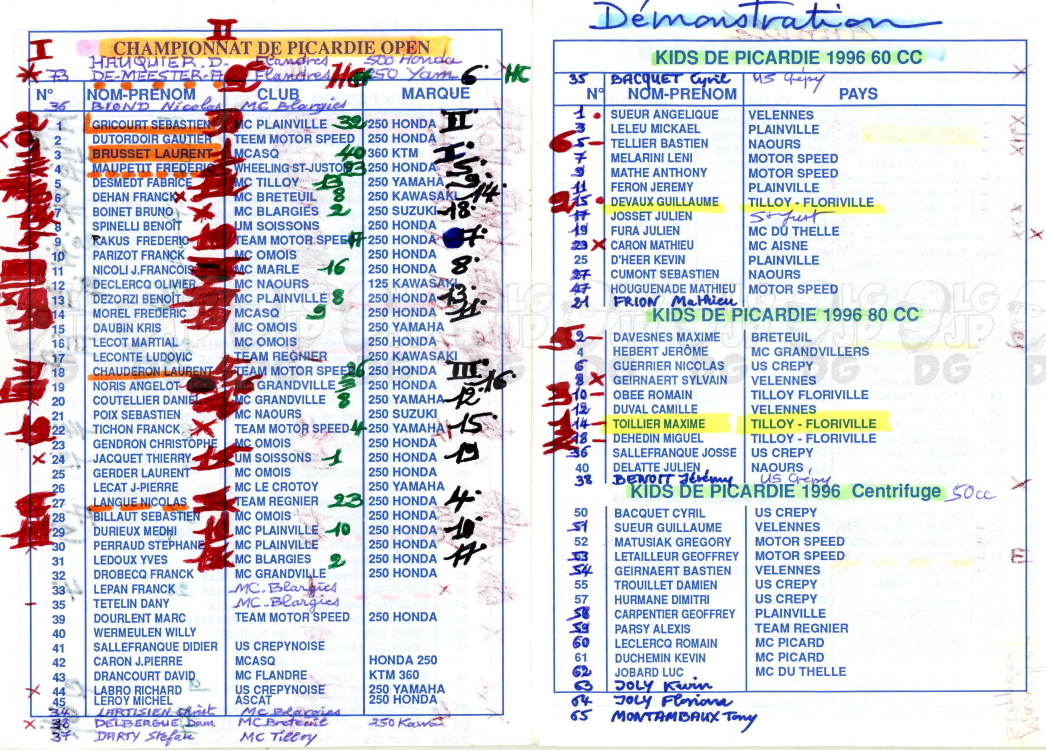 II
I
CHAMPIONNAT DE PICARDIE OPEN
HAUQUIER.D. Flandres 500 Honda
73 DE-MEESTER-A Flandres HC 250 Yam 6 HC
N° NOM-PRENOM CLUB MARQUE
36 BIOND Nicolas MC Blargies
1 GRICOURT SEBASTIEN MC PLAINVILLE 32 250 HONDA II
2 DUTORDOIR GAUTIER TEEM MOTOR SPEED 250 HONDA
3 BRUSSET LAURENT MCASQ 40 360 KTM I
4 MAUPETIT FREDERIC WHEELING ST-JUSTOIS 250 HONDA 5
5 DESMEDT FABRICE MC TILLOY 13 250 YAMAHA 9
6 DEHAN FRANCK MC BRETEUIL 8 250 KAWASAKI 14
7 BOINET BRUNO MC BLARGIES 2 250 SUZUKI 18
8 SPINELLI BENOÎT UM SOISSONS 250 HONDA
9 KAKUS FREDERIC TEAM MOTOR SPEED 250 HONDA
10 PARIZOT FRANCK MC OMOIS 250 HONDA
11 NICOLI J.FRANCOIS MC MARLE 16 250 HONDA 8
12 DECLERCQ OLIVIER MC NAOURS 125 KAWASAKI
13 DEZORZI BENOÎT MC PLAINVILLE 8 250 HONDA 13
14 MOREL FREDERIC MCASQ 9 250 HONDA 11
15 DAUBIN KRIS MC OMOIS 250 YAMAHA
16 LECOT MARTIAL MC OMOIS 250 HONDA
17 LECONTE LUDOVIC TEAM REGNIER 250 KAWASAKI
18 CHAUDERON LAURENT TEAM MOTOR SPEED 26 250 HONDA III
19 NORIS ANGELOT MC GRANDVILLE 250 HONDA 16
20 COUTELLIER DANIEL MC GRANDVILLE 8 250 YAMAHA 12
21 POIX SEBASTIEN MC NAOURS 250 SUZUKI
22 TICHON FRANCK TEAM MOTOR SPEED 4 250 YAMAHA 15
23 GENDRON CHRISTOPHE MC OMOIS 250 HONDA
24 JACQUET THIERRY UM SOISSONS 1 250 HONDA 19
25 GERDER LAURENT MC OMOIS 250 HONDA
26 LECAT J-PIERRE MC LE CROTOY 250 YAMAHA
27 LANGUE NICOLAS TEAM REGNIER 23 250 HONDA 4
28 BILLAUT SEBASTIEN MC OMOIS 250 HONDA
29 DURIEUX MEDHI MC PLAINVILLE 10 250 HONDA 10
30 PERRAUD STEPHANE MC PLAINVILLE 250 HONDA
31 LEDOUX YVES MC BLARGIES 2 250 HONDA 17
32 DROBECQ FRANCK MC GRANDVILLE 250 HONDA
33 LEPAN FRANCK MC-Blargies
35 TETELIN DANY MC-Blargies
39 DOURLENT MARC TEAM MOTOR SPEED 250 HONDA
40 WERMEULEN WILLY
41 SALLEFRANQUE DIDIER US CREPYNOISE
42 CARON J.PIERRE MCASQ HONDA 250
43 DRANCOURT DAVID MC FLANDRE KTM 360
44 LABRO RICHARD US CREPYNOISE 250 YAMAHA
45 LEROY MICHEL ASCAT 250 HONDA
34 LARTISIEN Christ MC Blargies
38 DELBERGUE Dam MC Breteuil 250 Kawa
37 DARTY Stefan MC Tilloy
Démonstration
KIDS DE PICARDIE 1996 60 CC
35 BACQUET Cyril US Crépy
N° NOM-PRENOM PAYS
1 SUEUR ANGELIQUE VELENNES
3 LELEU MICKAEL PLAINVILLE
5 TELLIER BASTIEN NAOURS
7 MELARINI LENI MOTOR SPEED
9 MATHE ANTHONY MOTOR SPEED
11 FERON JEREMY PLAINVILLE
15 DEVAUX GUILLAUME TILLOY - FLORIVILLE
17 JOSSET JULIEN St Just
19 FURA JULIEN MC DU THELLE
23 CARON MATHIEU MC AISNE
25 D'HEER KEVIN PLAINVILLE
27 CUMONT SEBASTIEN NAOURS
47 HOUGUENADE MATHIEU MOTOR SPEED
21 FRION Mathieu
KIDS DE PICARDIE 1996 80 CC
2 DAVESNES MAXIME BRETEUIL
4 HEBERT JERÔME MC GRANDVILLERS
6 GUERRIER NICOLAS US CREPY
8 GEIRNAERT SYLVAIN VELENNES
10 OBEE ROMAIN TILLOY FLORIVILLE
12 DUVAL CAMILLE VELENNES
14 TOILLIER MAXIME TILLOY - FLORIVILLE
18 DEHEDIN MIGUEL TILLOY - FLORIVILLE
36 SALLEFRANQUE JOSSE US CREPY
40 DELATTE JULIEN NAOURS
38 BENOIT Jérémy US Crépy
KIDS DE PICARDIE 1996 Centrifuge 50cc
50 BACQUET CYRIL US CREPY
51 SUEUR GUILLAUME VELENNES
52 MATUSIAK GREGORY MOTOR SPEED
53 LETAILLEUR GEOFFREY MOTOR SPEED
54 GEIRNAERT BASTIEN VELENNES
55 TROUILLET DAMIEN US CREPY
57 HURMANE DIMITRI US CREPY
58 CARPENTIER GEOFFREY PLAINVILLE
59 PARSY ALEXIS TEAM REGNIER
60 LECLERCQ ROMAIN MC PICARD
61 DUCHEMIN KEVIN MC PICARD
62 JOBARD LUC MC DU THELLE
63 JOLY Kevin
64 JOLY Floriane
65 MONTAMBAUX Tony